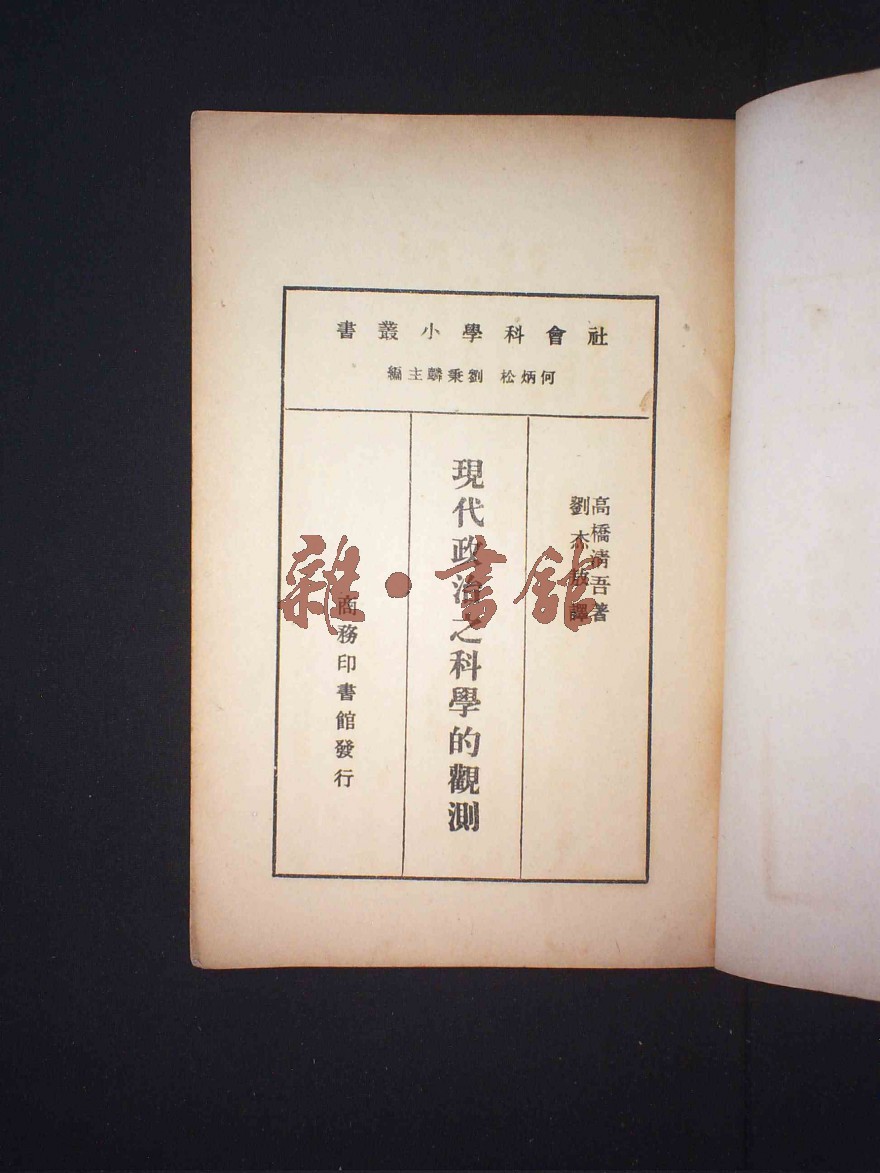 社會科學小叢書
何炳松 劉秉麟主編
高橋清吾著
劉杰敖譯
現代政治之科學的觀測
商務印書館發行
雜·書館